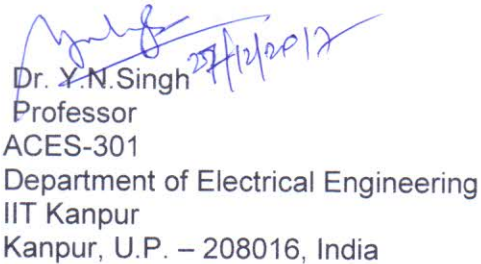 27/12/2017
Dr. Y.N.Singh
Professor
ACES-301
Department of Electrical Engineering
IIT Kanpur
Kanpur, U.P. – 208016, India